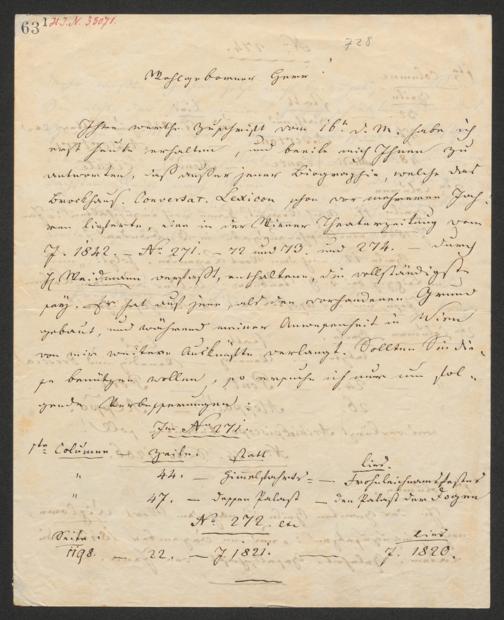 63
1 H.I.N. 38071.
728
Wohlgeborner Herr!
Ihre werthe Zuschrift vom 16t d. M. habe ich
erst heute erhalten, und beeile mich Ihnen zu
antworten, daß außer jener Biographie, welche das
Brockhaus. Conversat. Lexicon schon vor mehreren Jah-
ren lieferte, eine in der Wiener Theaterzeitung vom
J. 1842. – No 271. – 72 und 73. und 274. – durch
H. Weidmann verfaßt, enthaltene, die vollständigste
sey. Er hat auf jene, als den vorhandenen Grund
gebaut, und während meiner Anwesenheit in Wien
von mir weitere Auskünfte verlangt. Sollten Sie die-
se benützen wollen, so ersuche ich nur um fol-
gende Verbesserungen:
In No 271.
1te Columne Zeile statt lies.
" 44. – Himmelfahrts= – Frohnleichnamsfestes
" 47. – dessen Palast – den Palast der Dogen
No. 272. etc
Seite: lies
1198. – 22. – J 1821. – J. 1820.